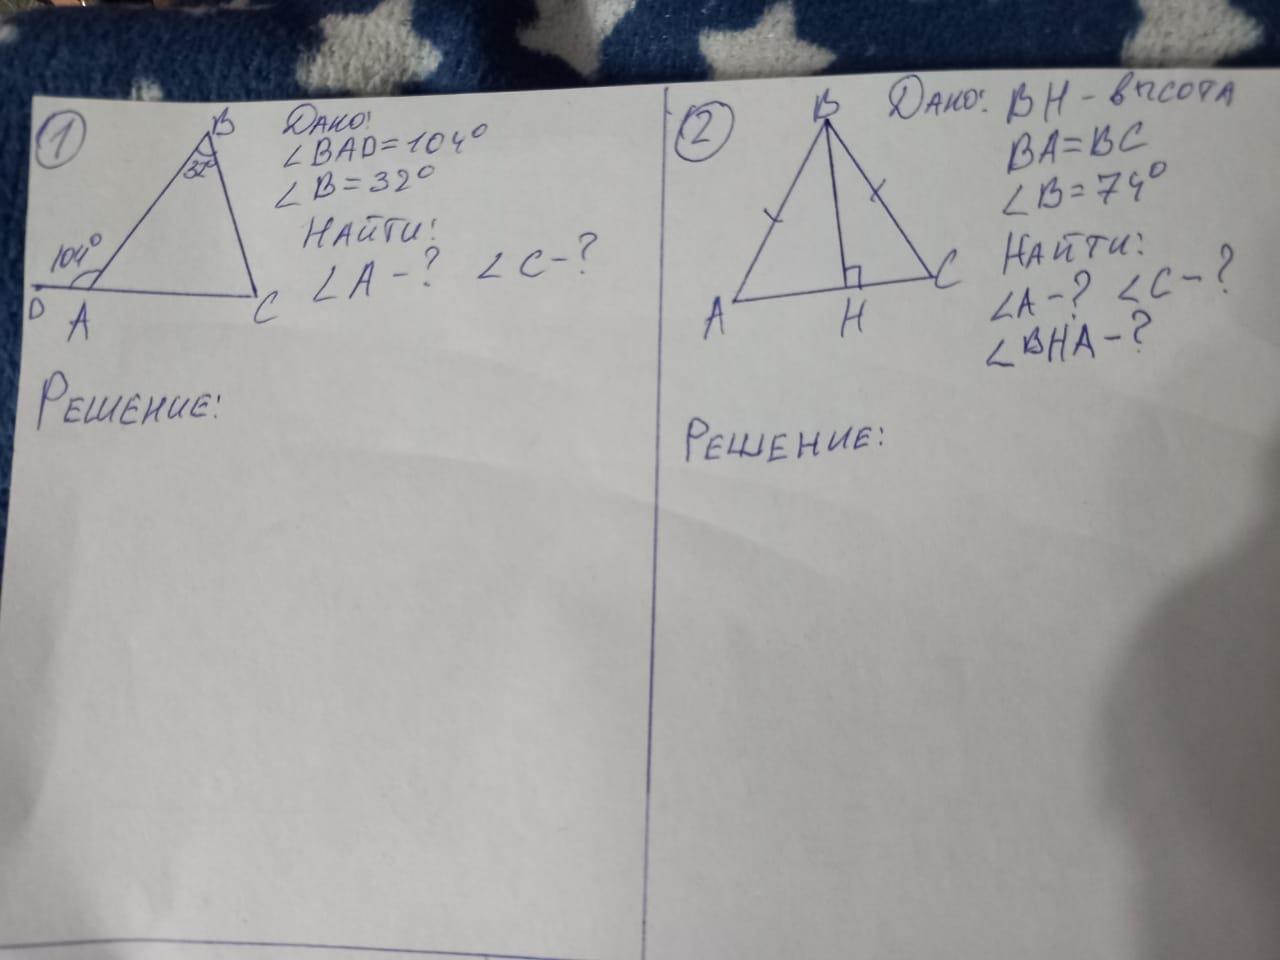 1
B
32°
104°
D
A
C
Дано:
∠BAD=104°
∠B=32°
Найти:
∠A-? ∠C-?
Решение:
2
B
A
H
C
Дано: BH-высота
BA=BC
∠B=74°
Найти:
∠A-? ∠C-?
∠BHA-?
Решение: